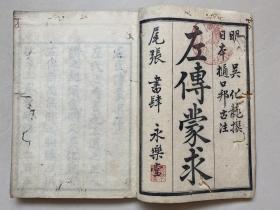 明 吳化龍撰
日本 樋口邦古注
左傳蒙求
尾張 書肆 永樂堂